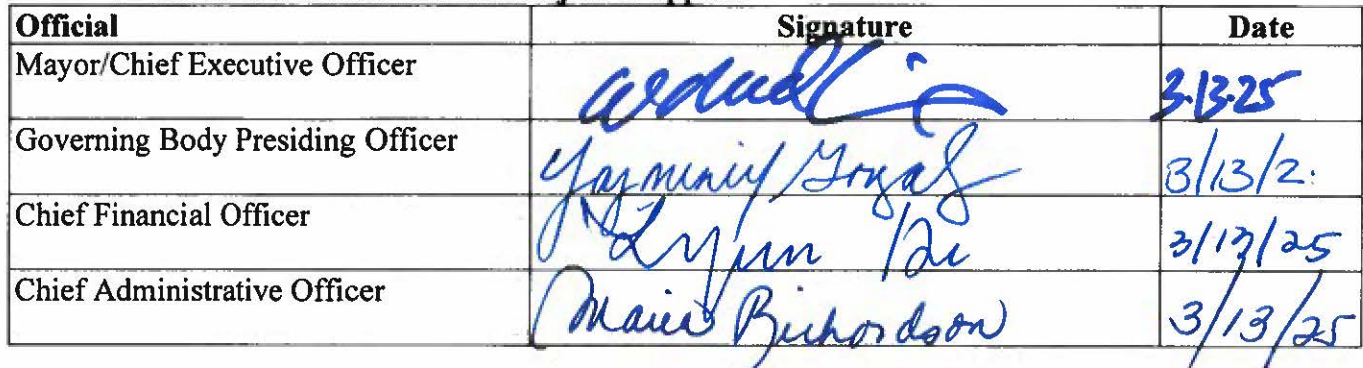 Official Signature Date
Mayor/Chief Executive Officer 3.13.25
Governing Body Presiding Officer 3/13/2
Chief Financial Officer Lynn 3/13/25
Chief Administrative Officer Maria Richardson 3/13/25